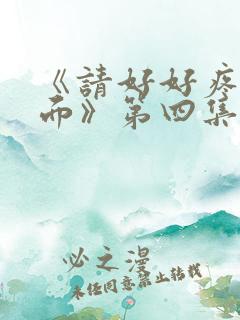 《請好好疼
而》第四集
必之漫
未经同意禁止转载